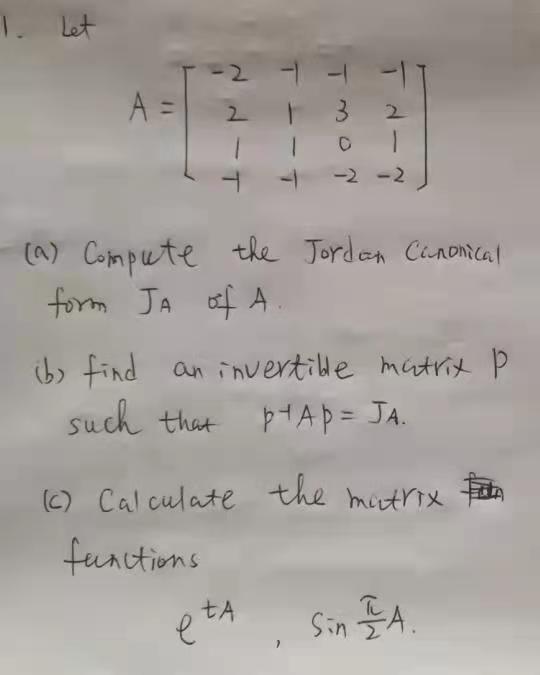 1. Let
-2 -1 -1 -1
A = 2 1 3 2
1 1 0 1
-1 -1 -2 -2
(a) Compute the Jordan Canonical
form JA of A.
(b) find an invertible matrix P
such that P-1AP = JA.
(c) Calculate the matrix
functions
e^tA , Sin π/2 A.